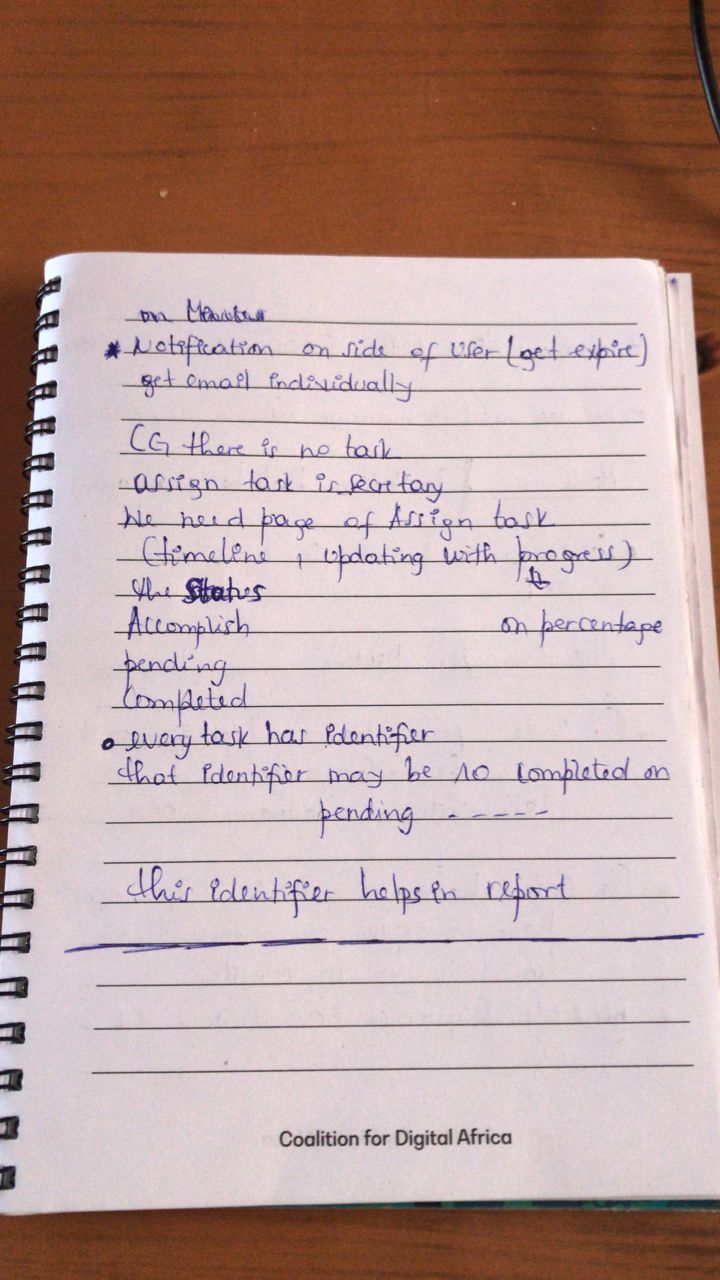 on
* Notification on side of User (get expire)
get email individually
CG there is no task
assign task is secretary
We need page of Assign task
(timeline, updating with progress)
the Status
Accomplish on percentage
pending
Completed
• every task has identifier
that identifier may be 10 completed on
pending - - - - -
this identifier helps in report
Coalition for Digital Africa